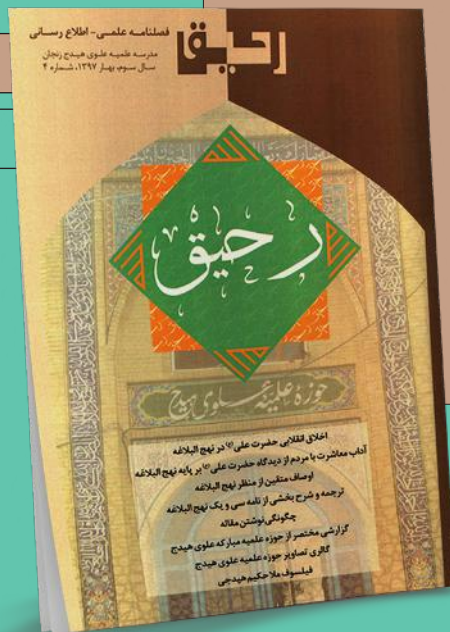 فصلنامه علمی - اطلاع رسانی
مدرسه علمیه علوی هیدج زنجان
سال سوم، بهار ۱۳۹۷، شماره ۴
رحیق
رحیق
حوزهٔ علمیه علوی هیدج
اخلاق انقلابی حضرت علی (ع) در نهج البلاغه
آداب معاشرت با مردم از دیدگاه حضرت علی (ع) بر پایه نهج البلاغه
اوصاف متقین از منظر نهج البلاغه
ترجمه و شرح بخشی از نامه سی و یک نهج البلاغه
چگونگی نوشتن مقاله
گزارشی مختصر از حوزه علمیه مبارکه علوی هیدج
گالری تصاویر حوزه علمیه علوی هیدج
فیلسوف ملاحکیم هیدجی